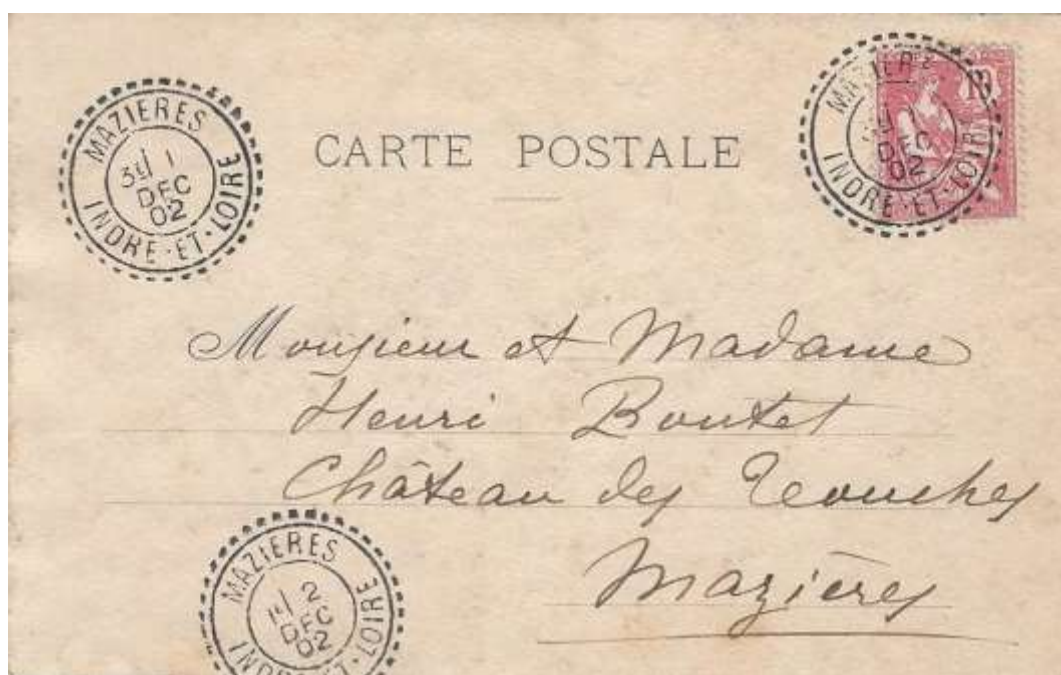 MAZIERES
1
DEC
02
INDRE-ET-LOIRE
CARTE POSTALE
MAZIER
10
DEC
02
INDRE-ET-LOIRE
Monsieur et Madame
Henri Boutet
Château des Touches
Mazières
MAZIERES
2
DEC
02
INDRE-ET-LOIRE